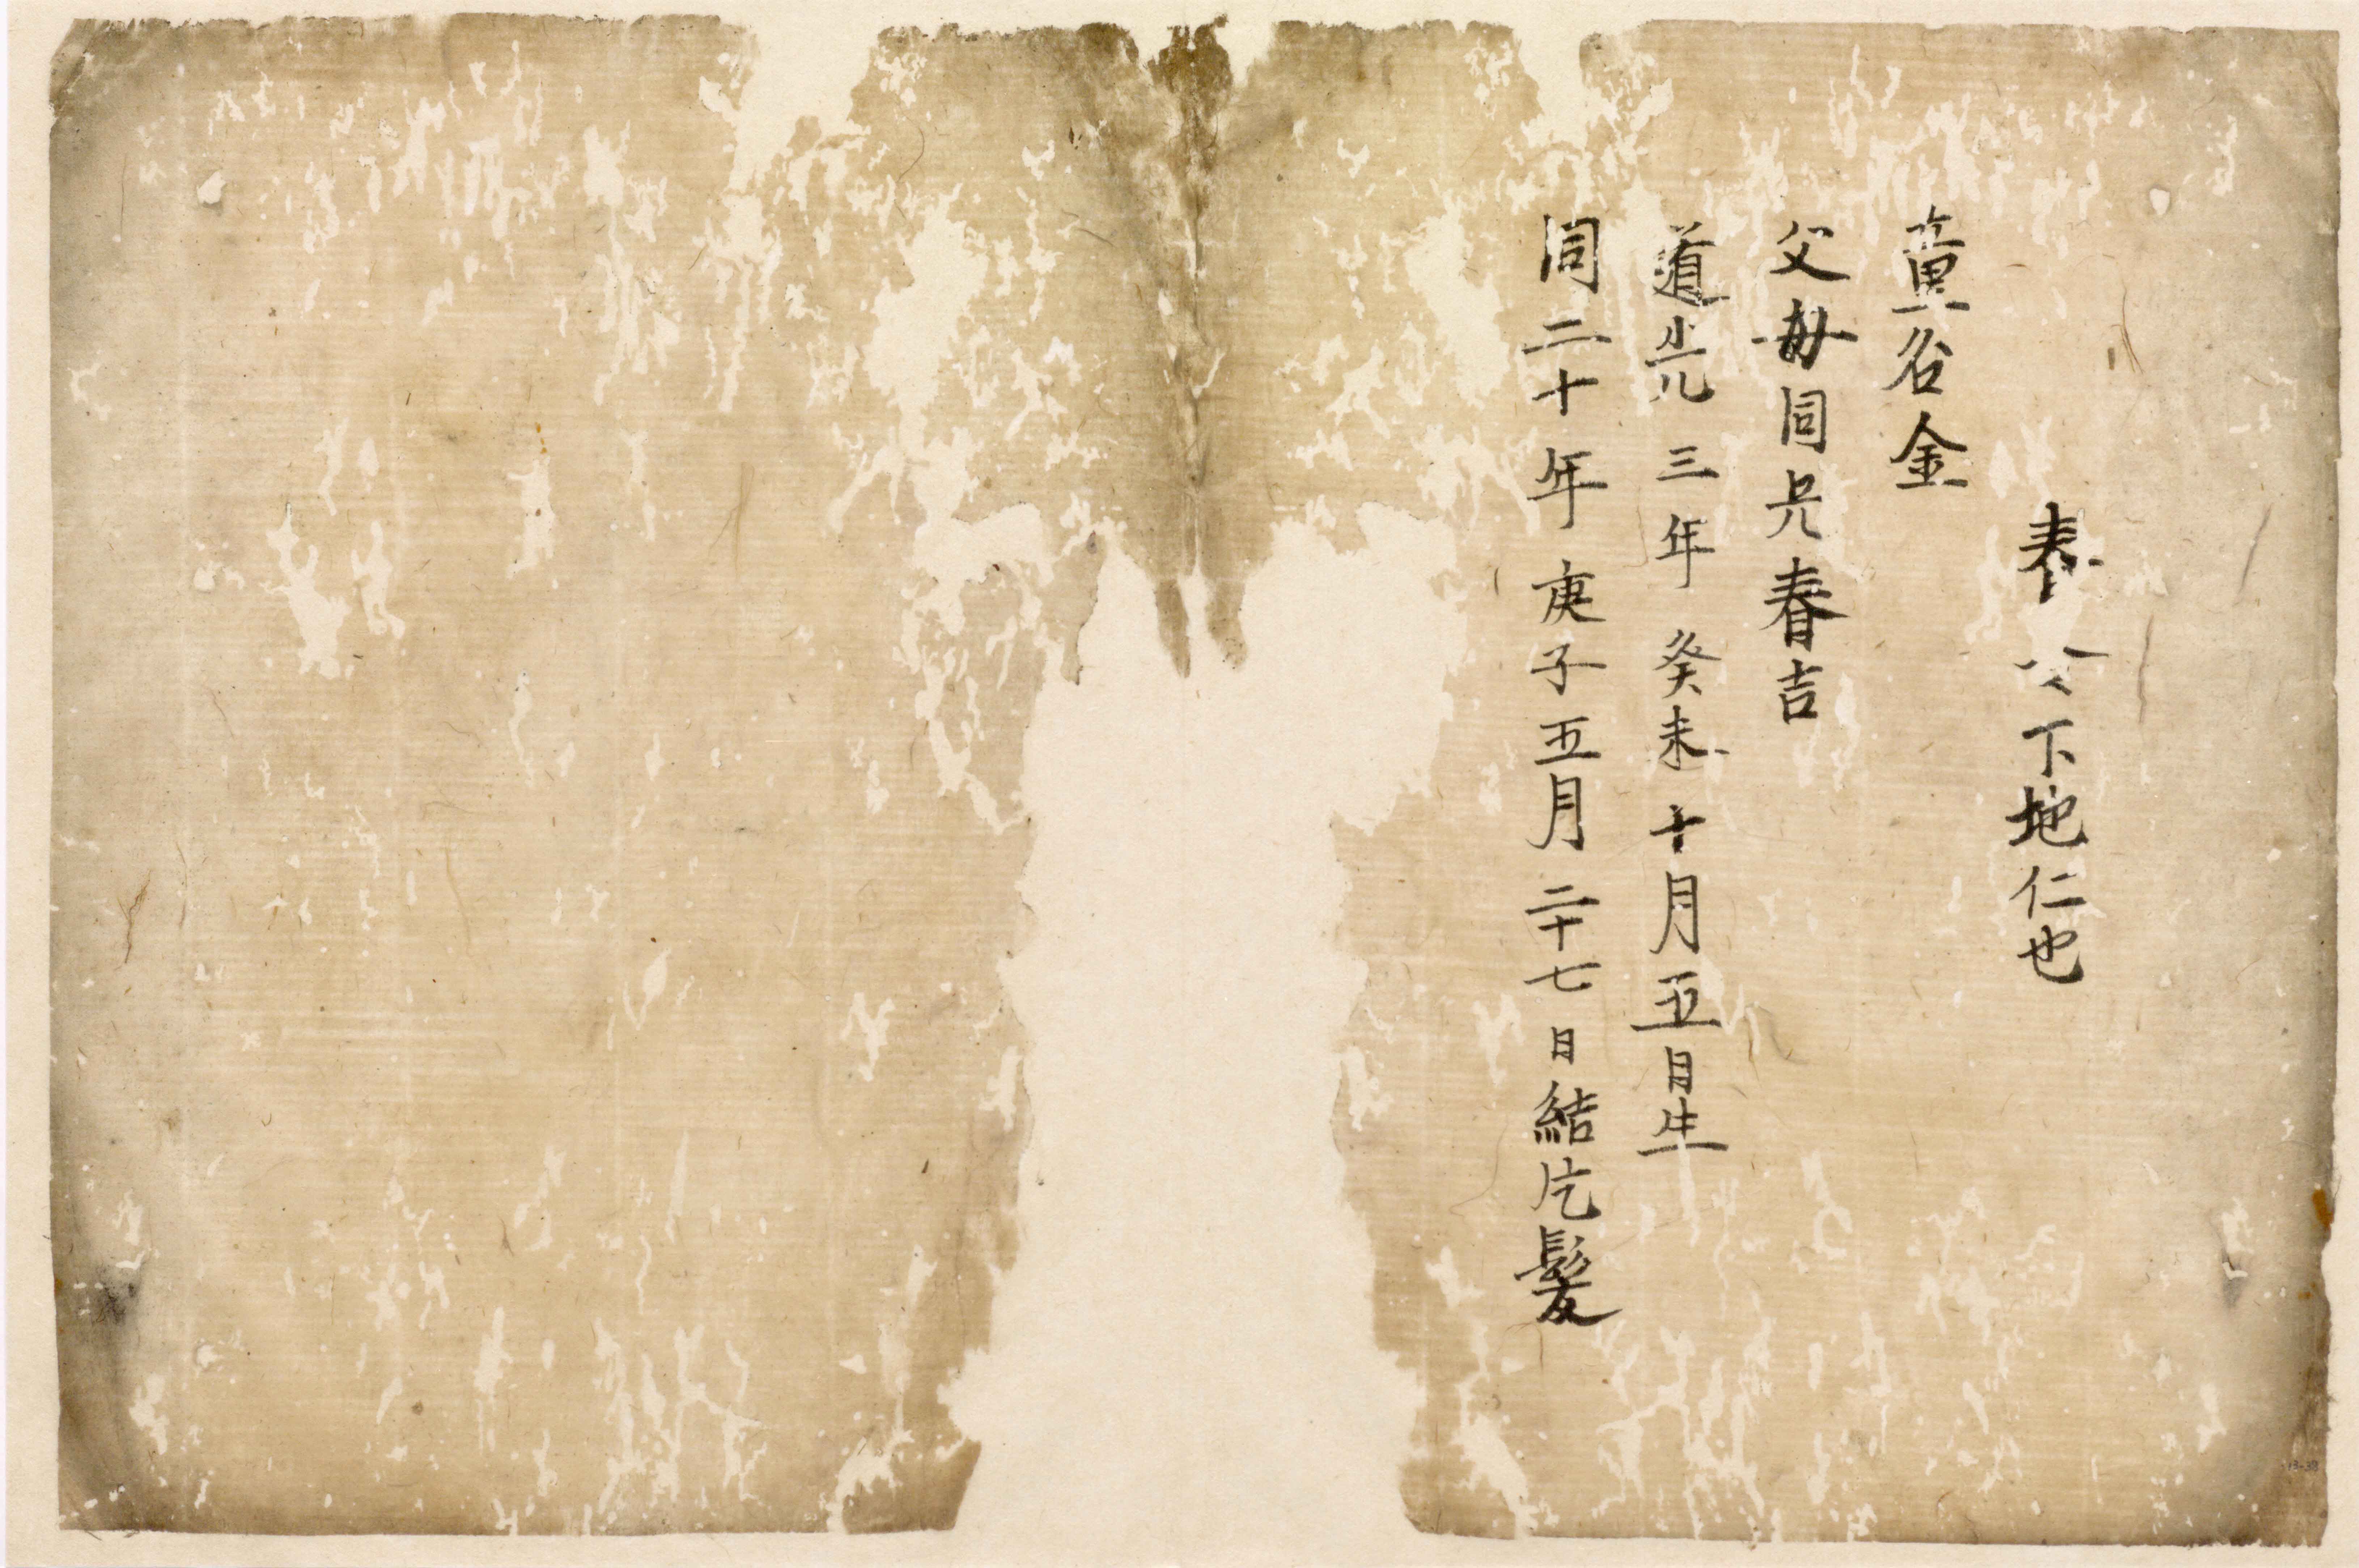 下地仁也
童名金
父母同兄春吉
道光三年癸未十月五日生
同二十年庚子五月二十七日結片髪